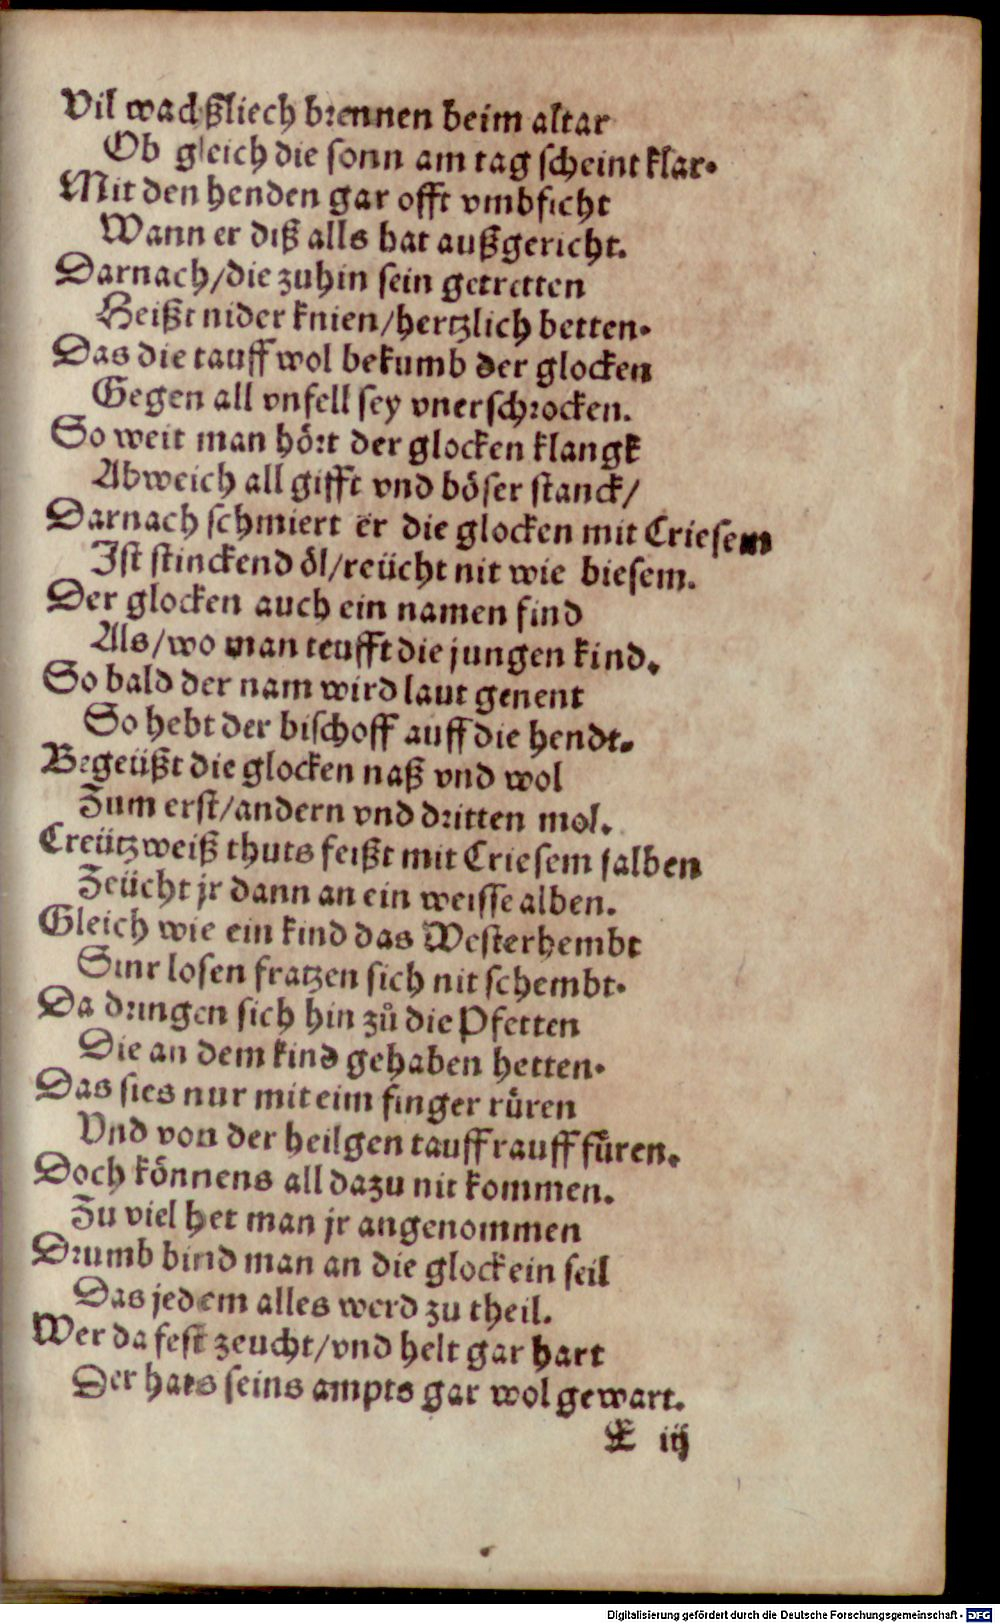 Vil wachßliech brennen beim altar
Ob gleich die sonn am tag scheint klar.
Mit den henden gar offt vmbficht
Wann er diß alls hat außgericht.
Darnach/die zuhin sein getretten
Heißt nider knien/hertzlich betten.
Das die tauff wol bekumb der glocken
Gegen all vnfell sey vnerschrocken.
So weit man hört der glocken klangk
Abweich all gifft vnd böser stanck/
Darnach schmiert er die glocken mit Criesem
Ist stinckend öl/reücht nit wie biesem.
Der glocken auch ein namen find
Als/wo man teufft die jungen kind.
So bald der nam wird laut genent
So hebt der bischoff auff die hendt.
Begeüßt die glocken naß vnd wol
Zum erst/andern vnd dritten mol.
Creützweiß thuts feißt mit Criesem salben
Zeücht jr dann an ein weisse alben.
Gleich wie ein kind das Westerhembt
Sinr losen fratzen sich nit schembt.
Da dringen sich hin zů die Pfetten
Die an dem kind gehaben hetten.
Das sies nur mit eim finger rüren
Vnd von der heilgen tauff rauff füren.
Doch könnens all dazu nit kommen.
Zu viel het man jr angenommen
Drumb bind man an die glock ein seil
Das jedem alles werd zu theil.
Wer da fest zeucht/vnd helt gar hart
Der hats seins ampts gar wol gewart.
E iij
Digitalisierung gefördert durch die Deutsche Forschungsgemeinschaft - DFG